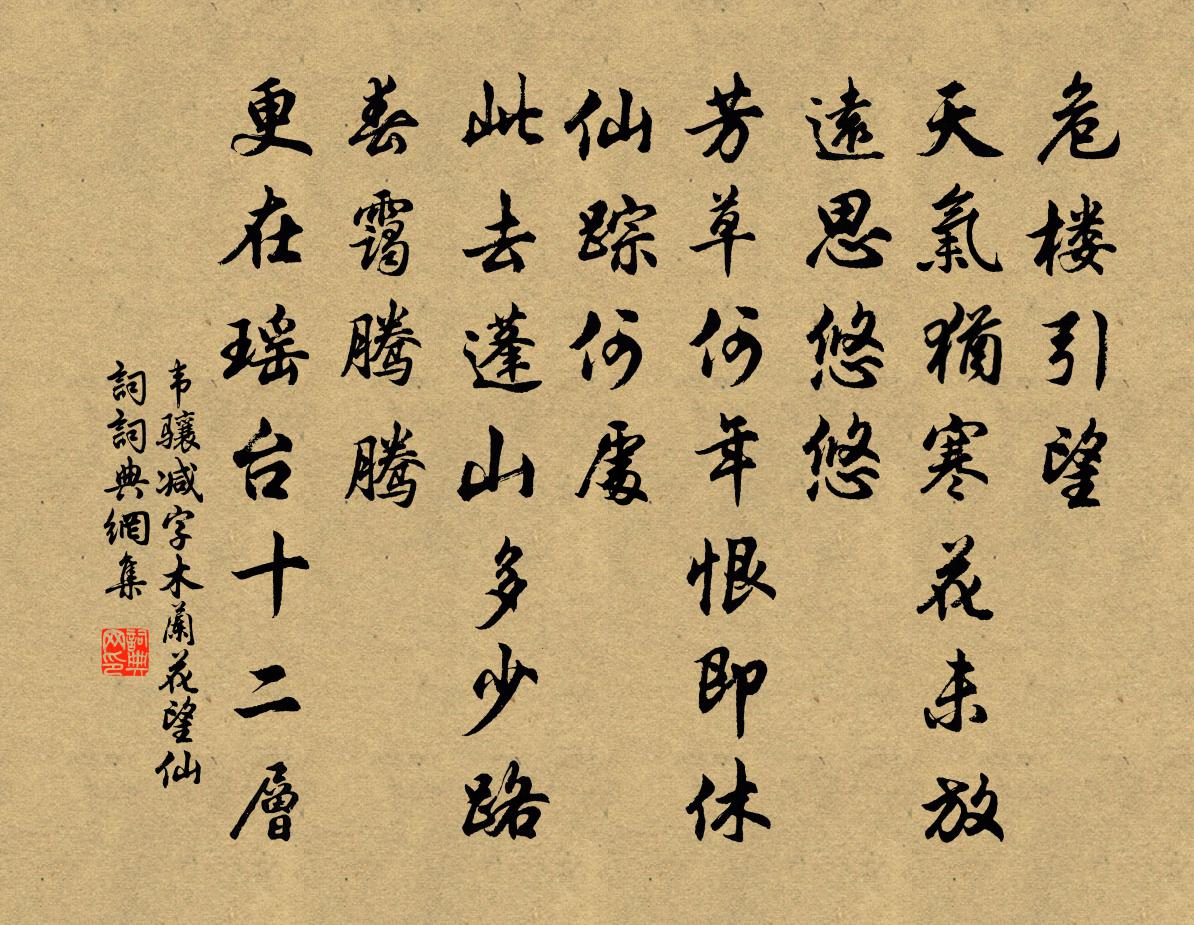 危楼引望
天氣猶寒花未放
遠思悠悠
芳草何年恨即休
仙踪何處
此去蓬山多少路
春靄腾腾
更在瑶台十二層
韦骧减字木蘭花望仙
詞詞典網集
詞典網印